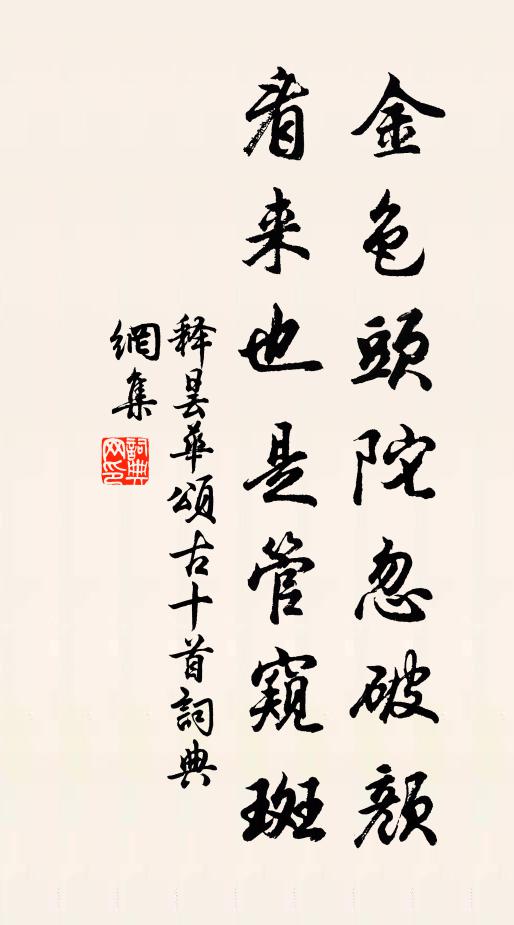 金色頭陀忽破顏
看来也是管窺斑
释曇華頌古十首詞典
網集
詞典网印